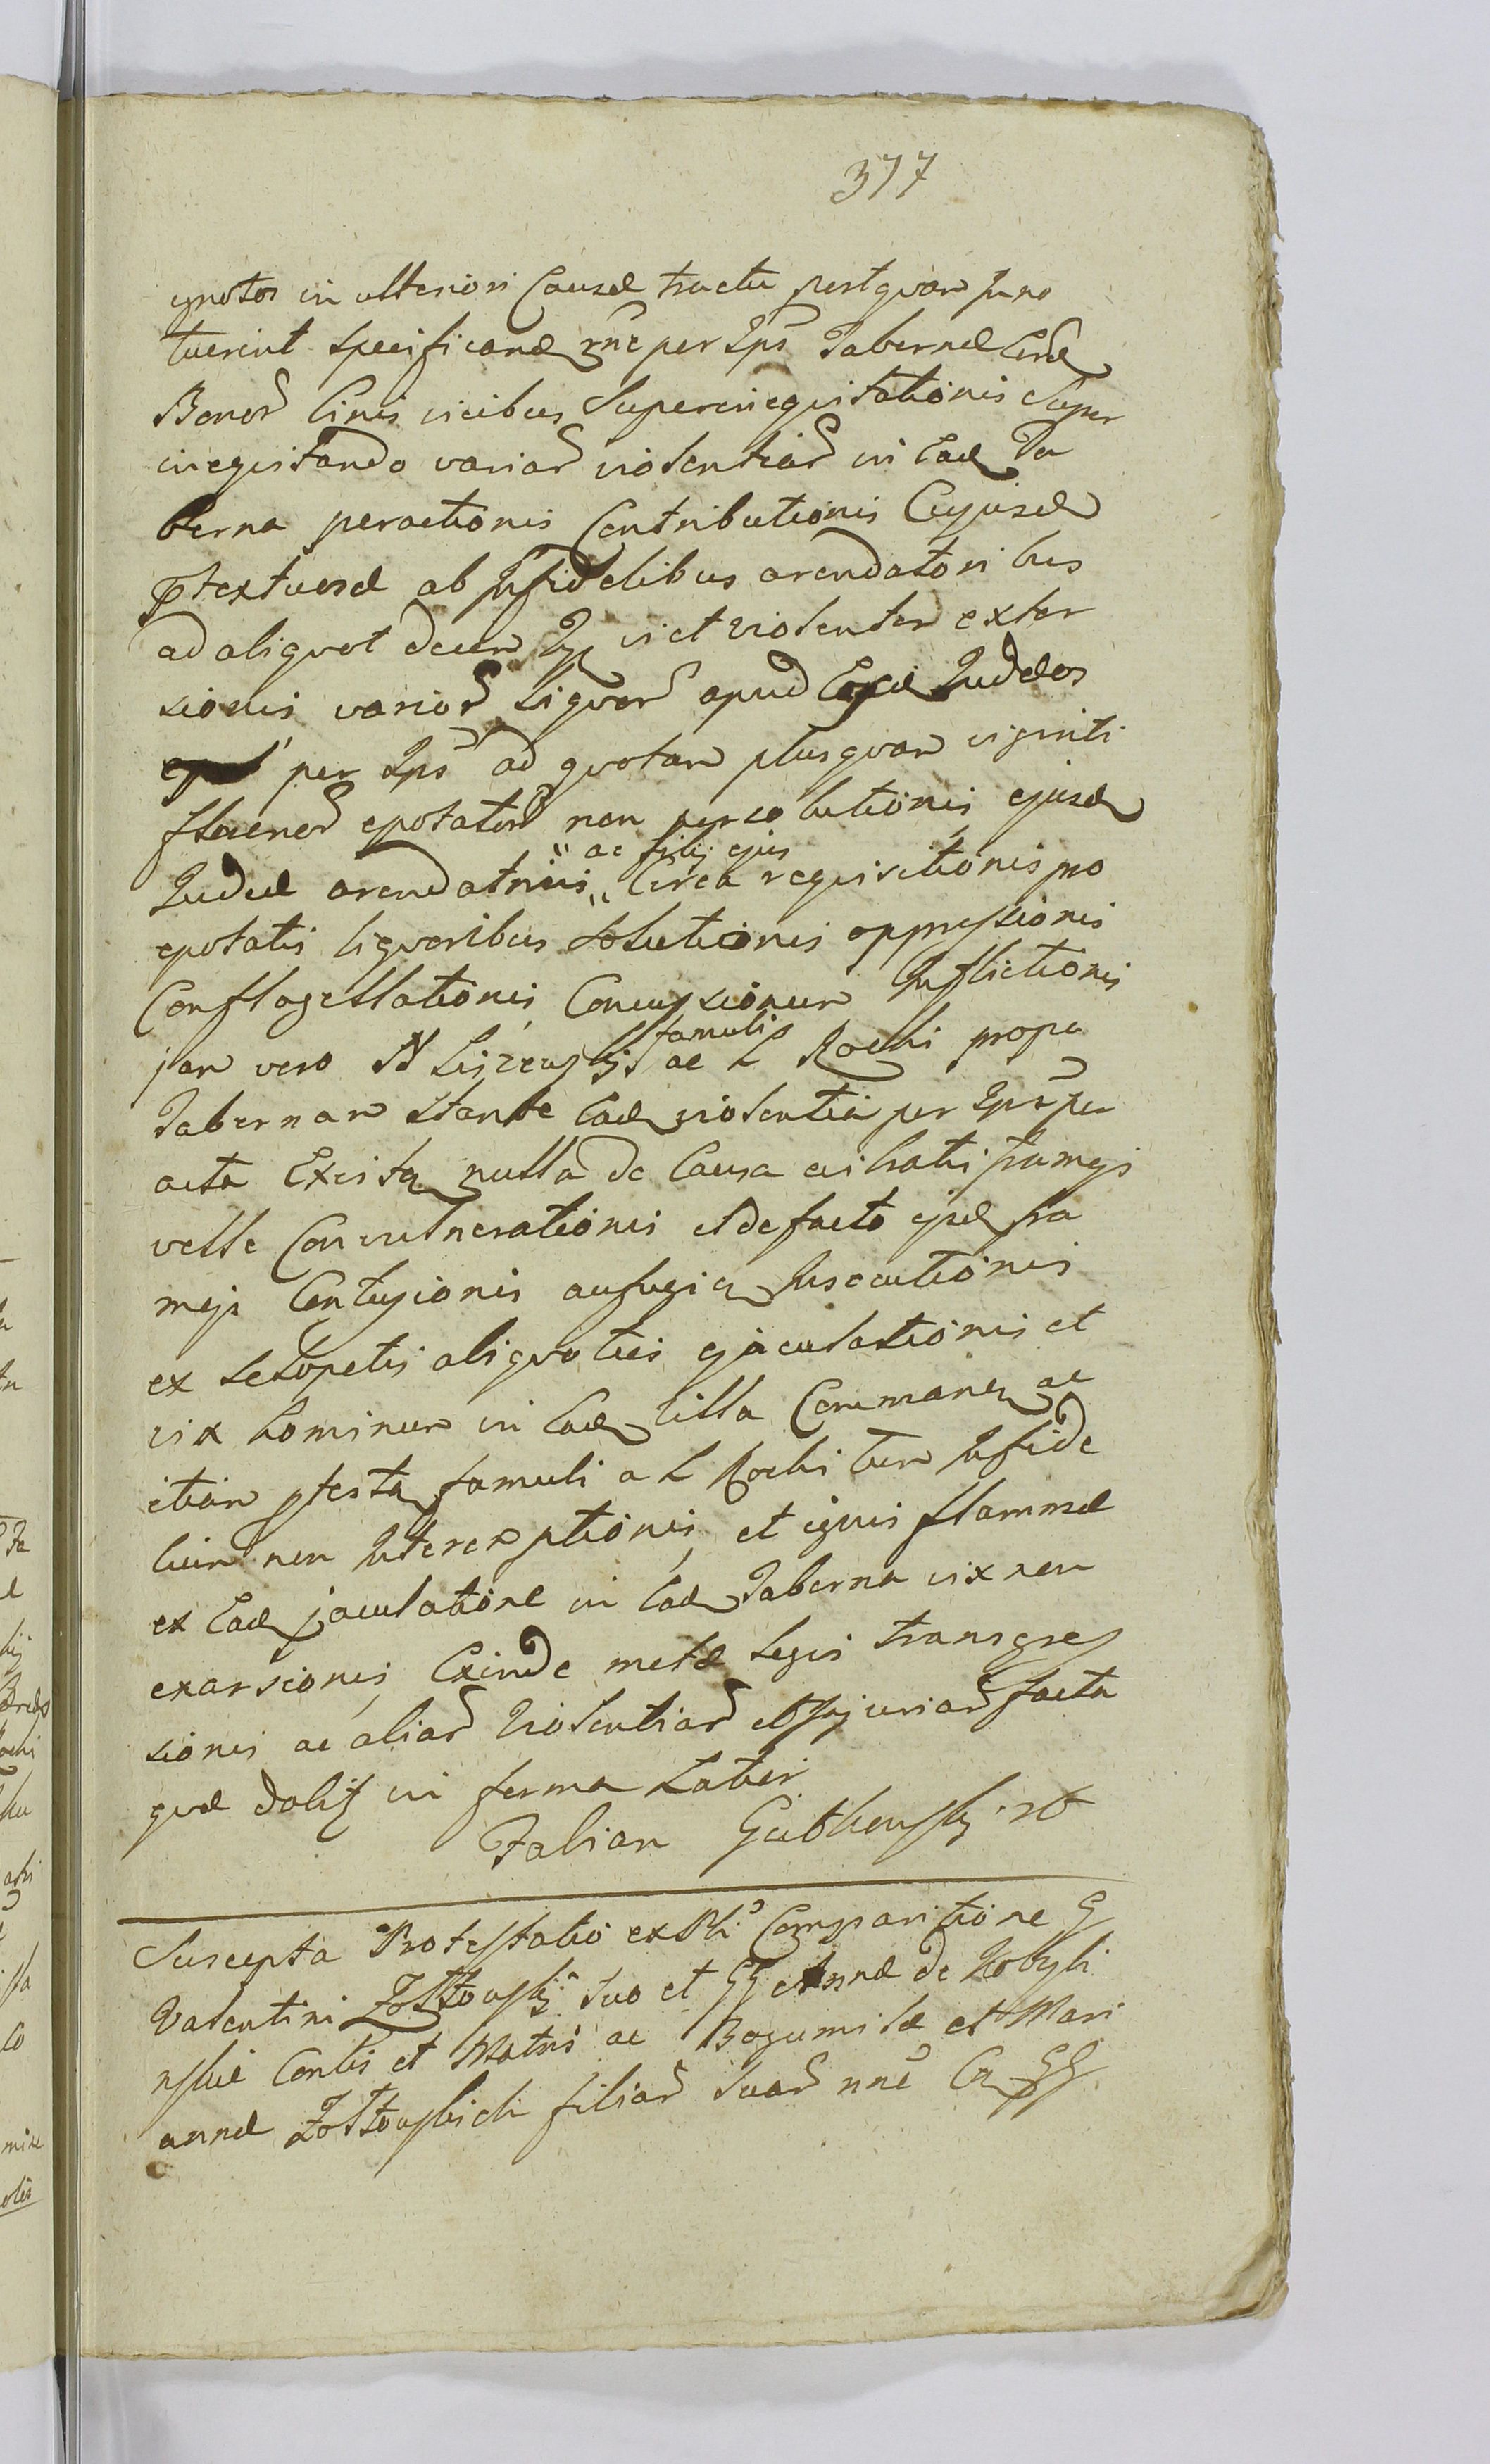 377
gnotos in ulteriori Causæ tractu postquam inno
tuerint specificand rne per Ips Tabernæ Eord
Bonor binis vicibus Superinequitationis Super
inequitando variar violentiar in Ead Ta
berna peractionis Contributionis Cujusd
ptextuosæ ab Infidelibus arendatoribus
ad aliquot decem vi et violenter extor
sionis varior liquor apud Eosd Judæos
per Ips ad quotam plusquam viginti
florenor epotator non persolutionis ejusd
Judæi arendatrii " ac filij ejus " Circa requisitionis pro
epotatis liquoribus Solutionis oppressionis
Conflagellationis Concussionum Inflictionis
jam vero N ac famulis L Rochi propa
Tabernam Stante Ead violentia per Ips per
acta Exista nulla de Causa evibratis frameis
velle Convulnerationis et de facto ejusd fra
meis Contusionis aufugien Insecutionis
ex Sclopetis aliquoties ejaculationis et
vix hominum in Ead Villa Comman ac
etiam ptesta famuli a L Rochi tum Infide
lium non Interemptionis et ignis flammæ
ex Ead jaculatione in Ead Taberna vix non
exarsionis Exinde metæ legis transgres
sionis ac aliar Violentiar et Injuriar facta
quæ dolis in forma Latiori
Fabian
Suscepta Protestatio ex Comparitione G
Valentini Zołtowski suo et GG Annæ de Kobyli
nskie Contis et Matris ac Bogumilæ et Mari
annæ Zołtowskich filiar suar nne Cn GG